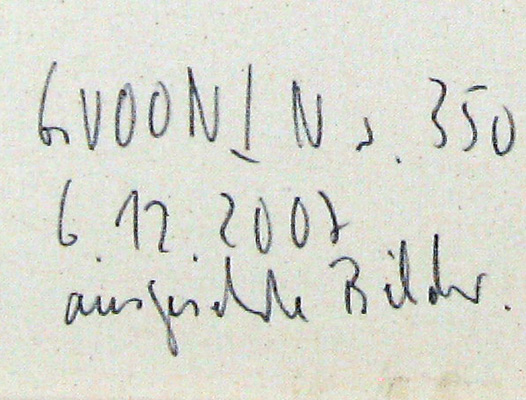 GVOON! Nr. 350
6 12 2007
ausgesuchte Bilder.